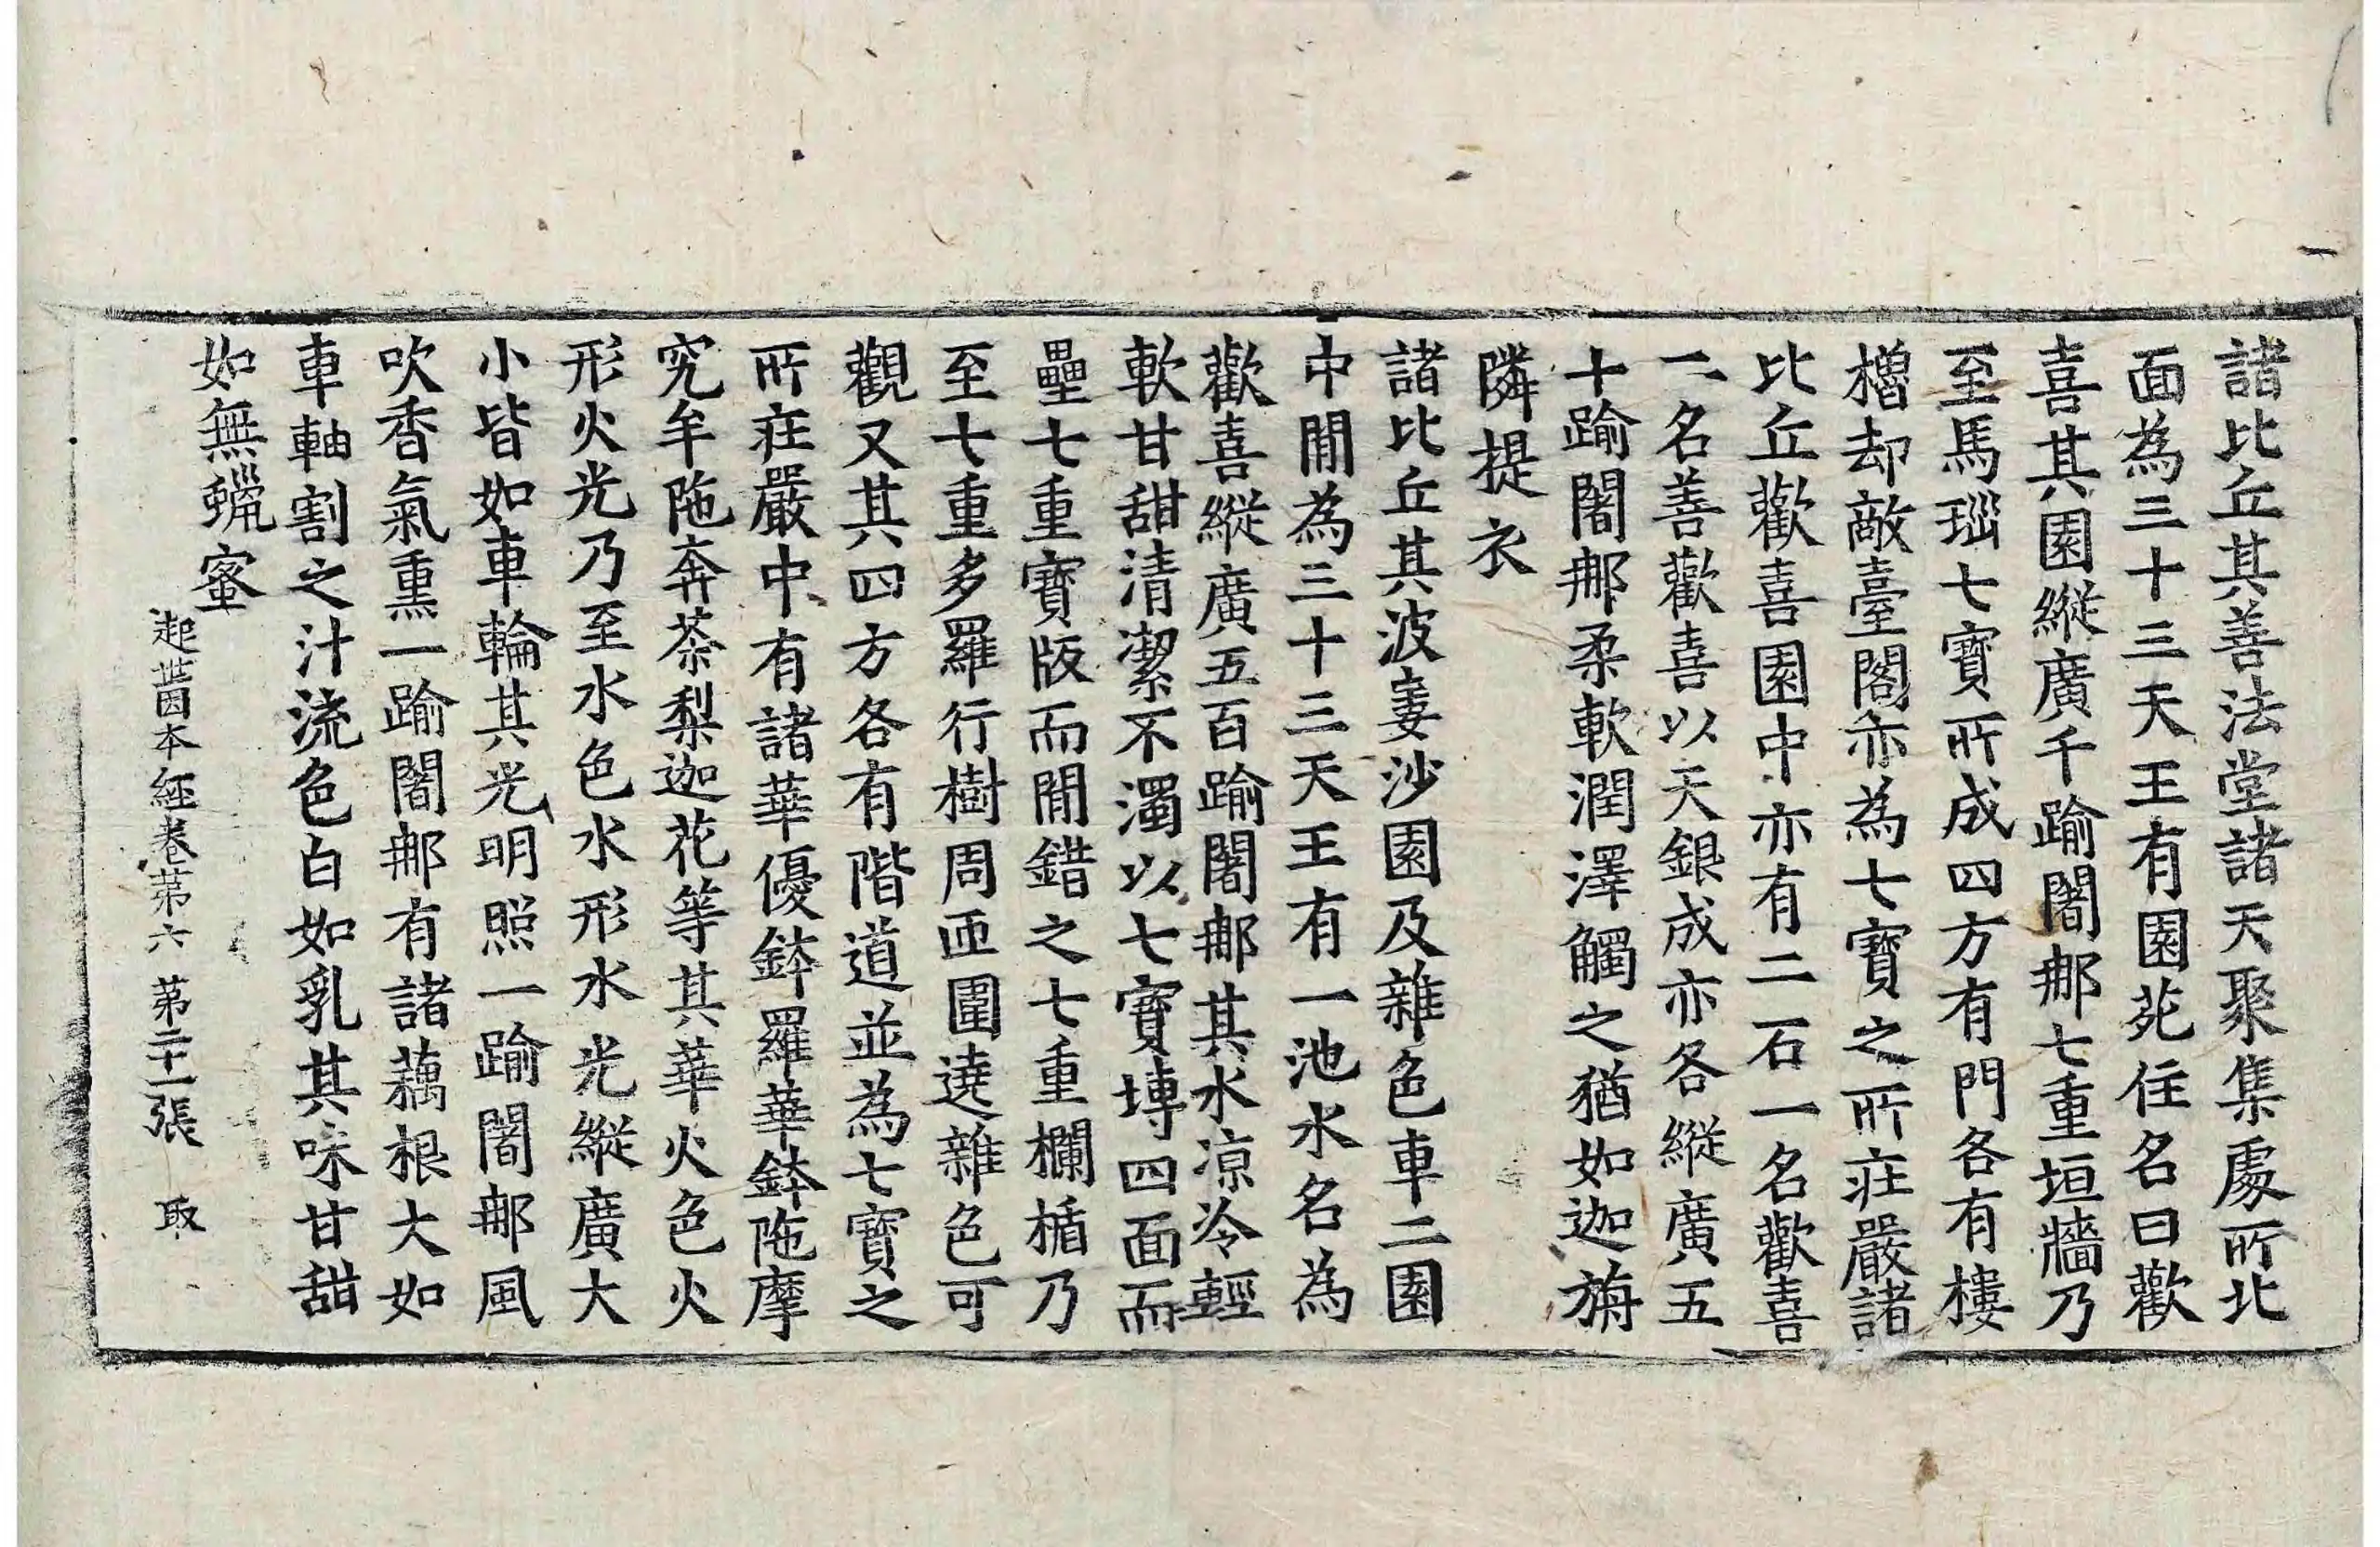 諸比丘其善法堂諸天聚集處所北
面為三十三天王有園苑住名曰歡
喜其園縱廣千踰闍那七重垣牆乃
至馬瑙七寶所成四方有門各有樓
櫓却敵臺閣亦為七寶之所莊嚴諸
比丘歡喜園中亦有二石一名歡喜
二名善歡喜以天銀成亦各縱廣五
十踰闍那柔軟潤澤觸之猶如迦旃
隣提衣
諸比丘其波婁沙園及雜色車二園
中間為三十三天王有一池水名為
歡喜縱廣五百踰闍那其水凉冷輕
軟甘甜清潔不濁以七寶塼四面而
壘七重寶版而間錯之七重欄楯乃
至七重多羅行樹周匝圍遶雜色可
觀又其四方各有階道並為七寶之
所莊嚴中有諸華優鉢羅華鉢陁摩
究牟陁奔荼梨迦花等其華火色火
形火光乃至水色水形水光縱廣大
小皆如車輪其光明照一踰闍那風
吹香氣熏一踰闍那有諸藕根大如
車軸割之汁流色白如乳其味甘甜
如無蠟蜜
起世因本經卷第六 第二十一張 取